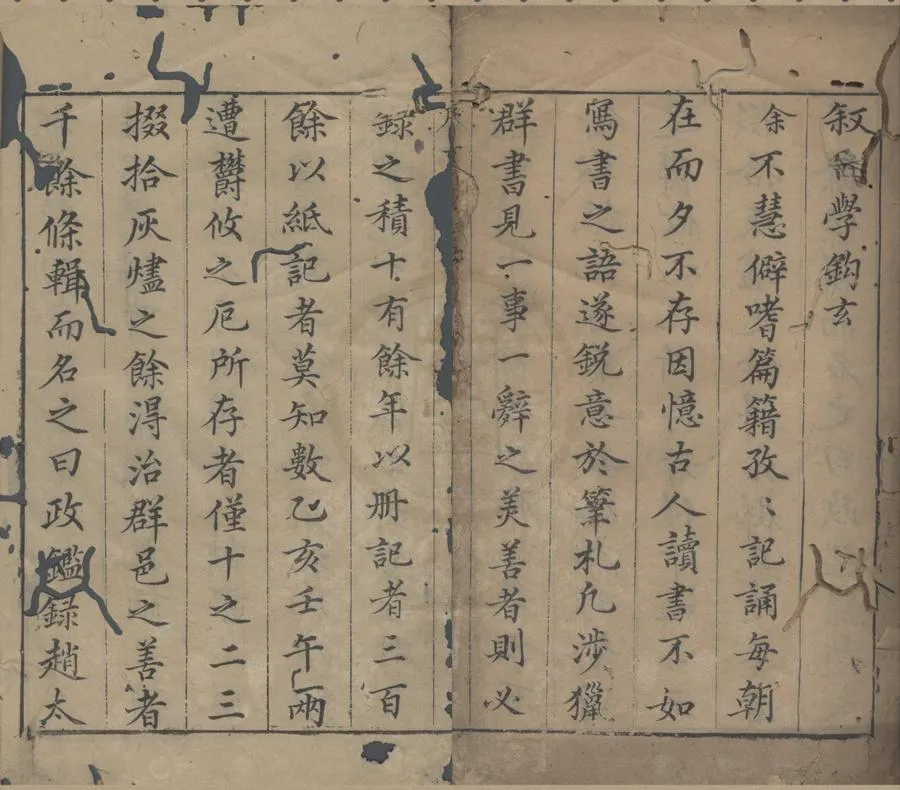 叙兩學鈎玄
余不慧僻嗜篇籍孜〻記誦每朝
在而夕不存因憶古人讀書不如
寫書之語遂銳意於筆札凡涉獵
群書見一事一辭之美善者則必
錄之積十有餘年以册記者三百
餘以紙記者莫知數乙亥壬午兩
遭欝攸之厄所存者僅十之二三
掇拾灰燼之餘淂治群邑之善者
千餘條輯而名之曰政鑑録趙太